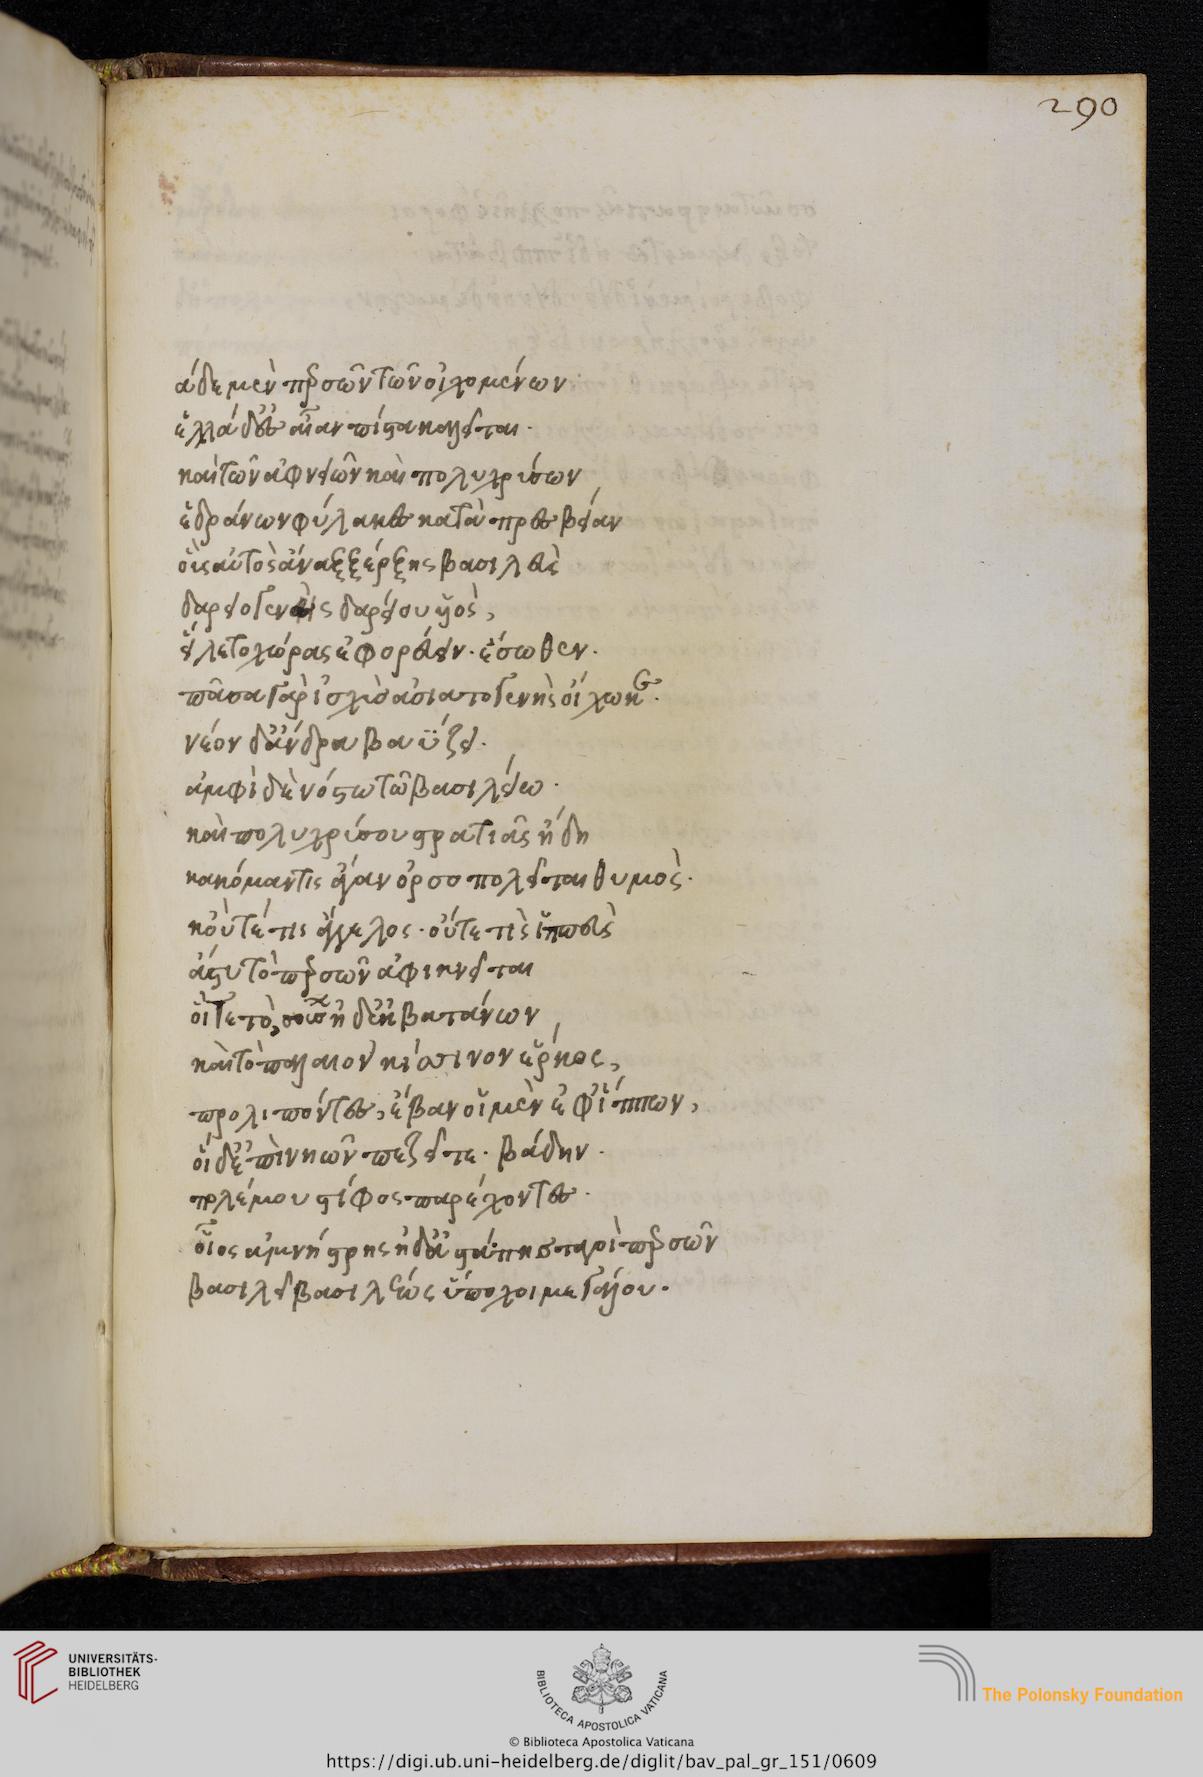 290
τάδε μὲν περσῶν τῶν οἰχομένων
ἑλλάδ' ἐς αἶαν πιστὰ καλεῖται·
καὶ τῶν ἀφνειῶν καὶ πολυχρύσων
ἑδράνων φύλακες κατὰ πρεσβείαν
οὓς αὐτὸς ἄναξ ξέρξης βασιλεὺς
δαρειογενὴς δαρείου υἱὸς,
εἵλετο χώρας ἐφορεύειν. ἔσωθεν.
πᾶσα γὰρ ἰσχὺς ἀσιατογενὴς οἴχωκε.
νέον δ' ἄνδρα βαΰζει.
ἀμφὶ δὲ νόστω τῶ βασιλείω.
καὶ πολυχρύσου στρατιᾶς ἤδη
κακόμαντις ἄγαν ὀρσοπολεῖται θυμὸς.
κοὔτέ τις ἄγγελος. οὔτε τὶς ἱππεὺς
ἄστυ τὸ περσῶν ἀφικνεῖται
οἵτε τὸ σούσων ἠδ' ἐκβατάνων
καὶ τὸ παλαιὸν κίσσινον ἕρκος,
προλιπόντες, ἔβαν οἱ μὲν ἐφ' ἵππων,
οἱ δ' ἐπὶ νηῶν πεζεῖ τε. βάδην.
πολέμου στίφος παρέχοντες.
οἷος ἀμνήστρης ἠδ' ἀστάπης ταγοὶ περσῶν
βασιλεῖ βασιλέως ὕποχοι μεγάλου.
UNIVERSITÄTS-
BIBLIOTHEK
HEIDELBERG
BIBLIOTECA APOSTOLICA VATICANA
© Biblioteca Apostolica Vaticana
The Polonsky Foundation
https://digi.ub.uni-heidelberg.de/diglit/bav_pal_gr_151/0609